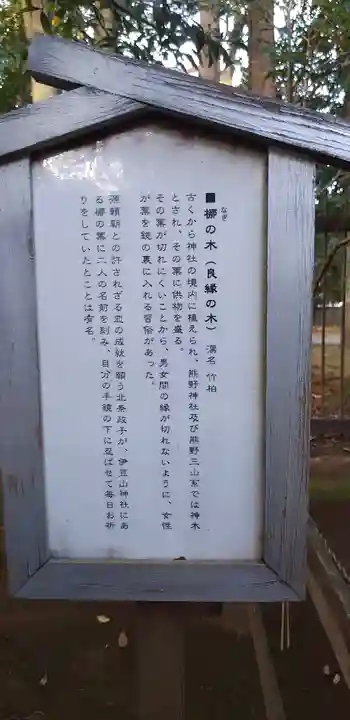 ■梛の木(良縁の木) 漢名 竹柏
なぎ
古くから神社の境内に植えられ、熊野神社及び熊野三山系では神木
とされ、その葉に供物を盛る。
その葉が切れにくいことから、男女間の縁が切れないように、女性
が葉を鏡の裏に入れる習俗があった。
源頼朝との許されざる恋の成就を願う北条政子が、伊豆山神社にあ
る梛の葉に二人の名前を刻み、自分の手鏡の下に忍ばせて毎日お祈
りをしていたとことは有名。